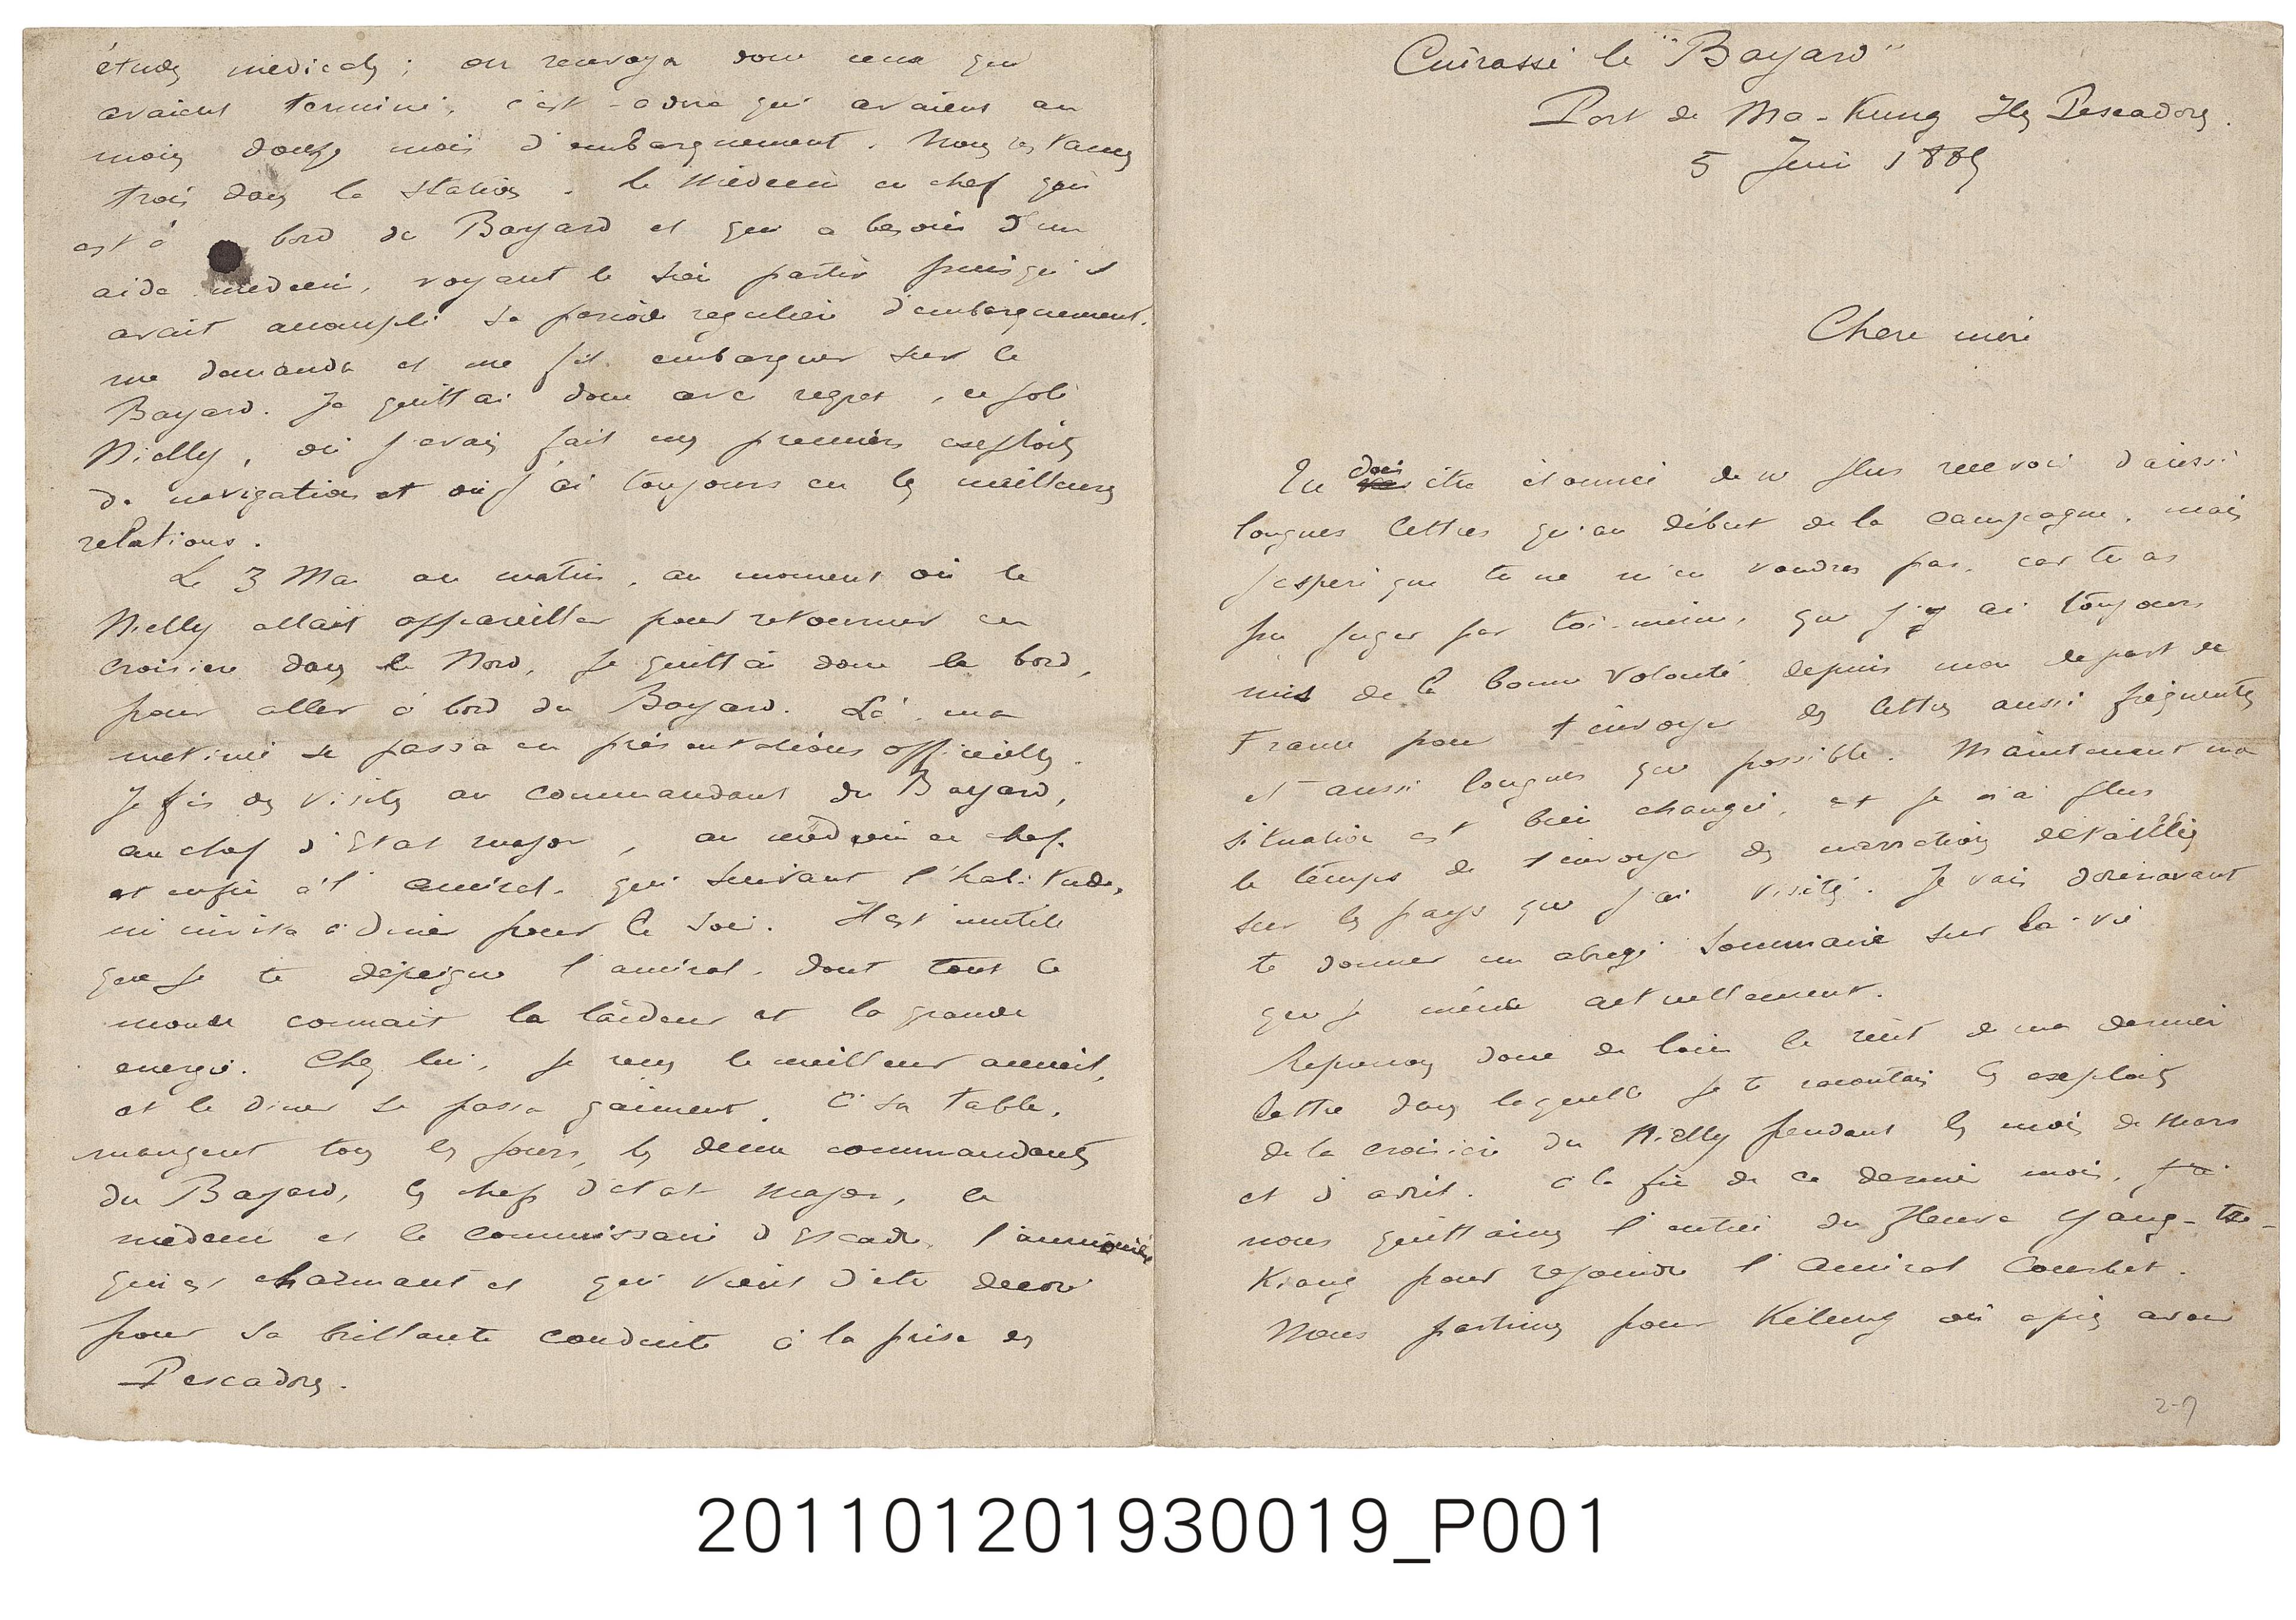 Cuirassé le "Bayard"
Port de Ma-Kung Iles Pescadores.
5 Juin 1885
Chère mère
Tu dois être étonnée de ne plus recevoir d'aussi
longues lettres qu'au début de la campagne, mais
j'espère que tu ne m'en voudras pas, car tu as
pu juger par toi-même, que j'y ai toujours
mis de la bonne volonté depuis mon départ de
France pour t'envoyer des lettres aussi fréquentes
et aussi longues que possible. Maintenant ma
situation est bien changée, et je n'ai plus
le temps de t'envoyer des narrations détaillées
sur les pays que j'ai visités. Je vais dorénavant
te donner un abrégé sommaire sur la vie
que je mène actuellement.
Reprenons donc de loin le récit de ma dernière
lettre dans laquelle je te racontais les exploits
de la croisière du Nielly pendant les mois de Mars
et d'avril. à la fin de ce dernier mois,
nous quittâmes l'entrée du fleuve Yang-tse-
Kiang pour rejoindre l'Amiral Courbet.
Nous partîmes pour Kélung où après avoir
2-9
études médicales ; on renvoya donc ceux qui
avaient terminé, c'est-à-dire qui avaient au
moins douze mois d'embarquement. Nous restames
trois dans la station. Le Médecin en chef qui
est à bord du Bayard et qui a besoin d'un
aide médecin, voyant le sien partir puisqu'il
avait accompli sa période régulière d'embarquement,
me demanda et me fit embarquer sur le
Bayard. Je quittai donc avec regret, ce joli
Nielly, où j'avais fait mes premiers exploits
de navigation et où j'ai toujours eu les meilleures
relations.
Le 3 Mai au matin, au moment où le
Nielly allait appareiller pour retourner en
croisière dans le Nord, je quittai donc le bord,
pour aller à bord du Bayard. Là ma
matinée se passa en présentations officielles.
Je fis des visites au commandant du Bayard,
au chef d'Etat major, au médecin en chef,
et enfin à l'amiral, qui suivant l'habitude,
m'invita à diner pour le soir. Il est inutile
que je te dépeigne l'amiral, dont tout le
monde connait la laideur et la grande
energie. Chez lui, je reçus le meilleur accueil,
et le diner se passa gaiment. à sa table,
mangent tous les jours, les deux commandants
du Bayard, le chef d'état major, le
médecin et le commissaire d'Escadre, l'aumônier
qui est charmant et qui vient d'être décoré
pour sa brillante conduite à la prise des
Pescadores.
201101201930019_P001